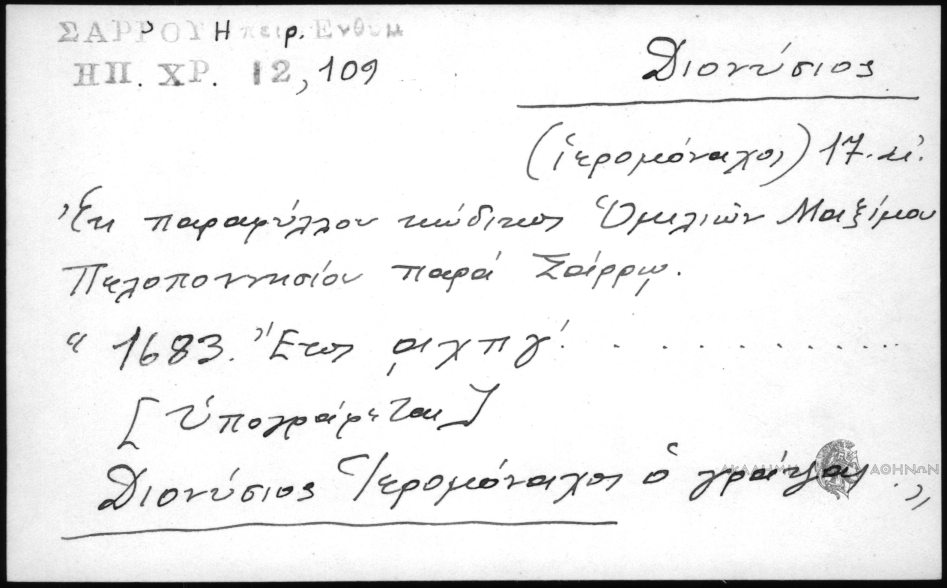 ΣΑΡΡΟΥ Ηπειρ. Ενθυμ
ΗΠ. ΧΡ. 12, 109
Διονύσιος
(ἱερομόναχος) 17. αἰ.
Ἐκ παραφύλλου κώδικος Ὁμιλιῶν Μαξίμου
Πελοποννησίου παρὰ Σάρρῳ.
" 1683. Ἔτος ͵αχπγ΄. . . . . . . . . . . . .
[Ὑπογράφεται]
Διονύσιος Ἱερομόναχος ὁ γράψας . "
ΑΚΑΔΗΜΙΑ ΑΘΗΝΩΝ